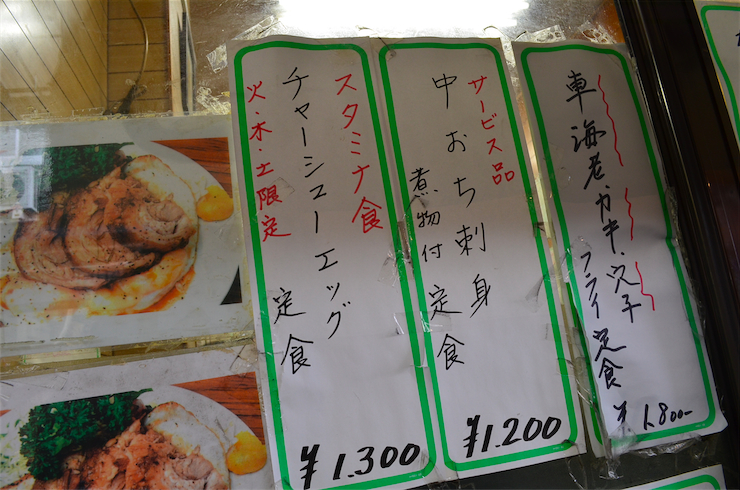 車海老・カキ・穴子
フライ定食
¥1.800-
サービス品
中おち刺身
煮物付定食
¥1.200
スタミナ食
チャーシューエッグ
定食
火・木・土限定
¥1.300